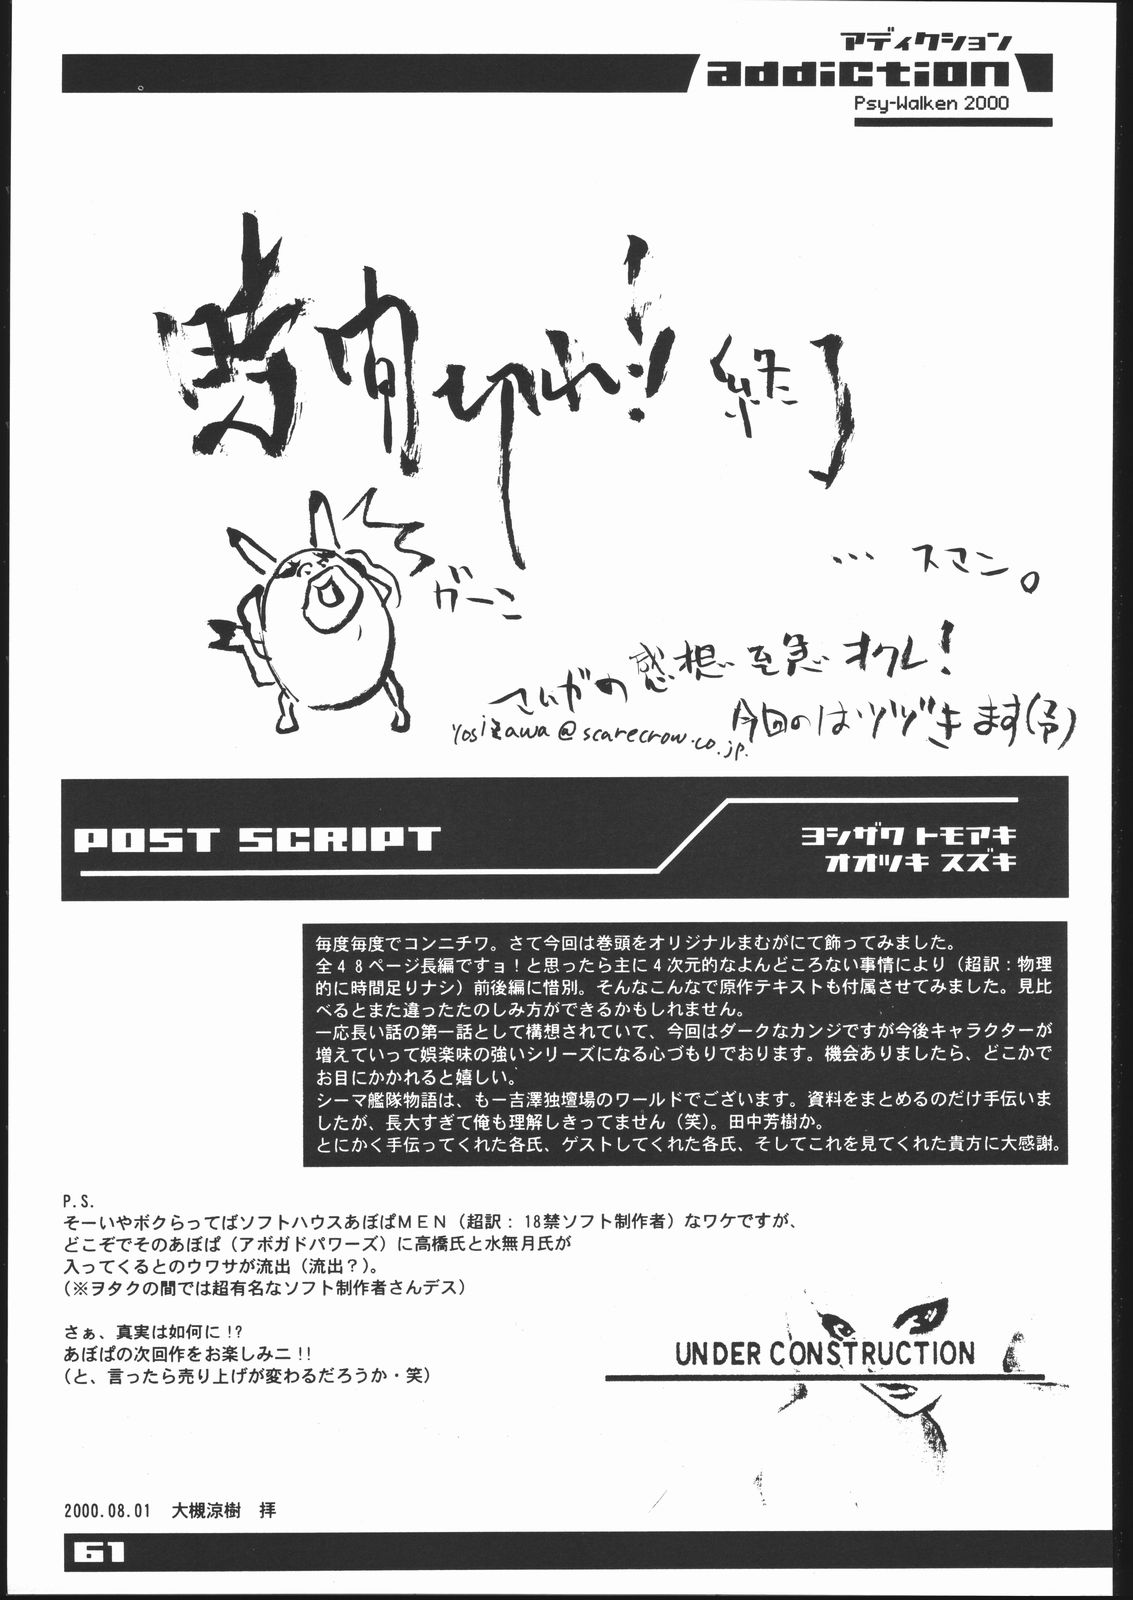 アディクション
addiction
Psy-Walken 2000
時間切れ!! 終了
ガーン
… スマン。
さいがの感想至急オクレ!
yosizawa@scarecrow.co.jp.
今回のはツヅきます(予)
POST SCRIPT
ヨシザワ トモアキ
オオツキ スズキ
毎度毎度でコンニチワ。さて今回は巻頭をオリジナルまむがにて飾ってみました。
全48ページ長編ですョ!と思ったら主に4次元的なよんどころない事情により(超訳:物理
的に時間足りナシ)前後編に惜別。そんなこんなで原作テキストも付属させてみました。見比
べるとまた違ったたのしみ方ができるかもしれません。
一応長い話の第一話として構想されていて、今回はダークなカンジですが今後キャラクターが
増えていって娯楽味の強いシリーズになる心づもりでおります。機会ありましたら、どこかで
お目にかかれると嬉しい。
シーマ艦隊物語は、も一吉澤独壇場のワールドでございます。資料をまとめるのだけ手伝いま
したが、長大すぎて俺も理解しきってません(笑)。田中芳樹か。
とにかく手伝ってくれた各氏、ゲストしてくれた各氏、そしてこれを見てくれた貴方に大感謝。
P.S.
そーいやボクらってばソフトハウスあぼぱMEN(超訳:18禁ソフト制作者)なワケですが、
どこぞでそのあぼぱ(アボガドパワーズ)に高橋氏と水無月氏が
入ってくるとのウワサが流出(流出?)。
(※ヲタクの間では超有名なソフト制作者さんデス)
さぁ、真実は如何に!?
あぼぱの次回作をお楽しみニ!!
(と、言ったら売り上げが変わるだろうか・笑)
UNDER CONSTRUCTION
2000.08.01 大槻涼樹 拝
61